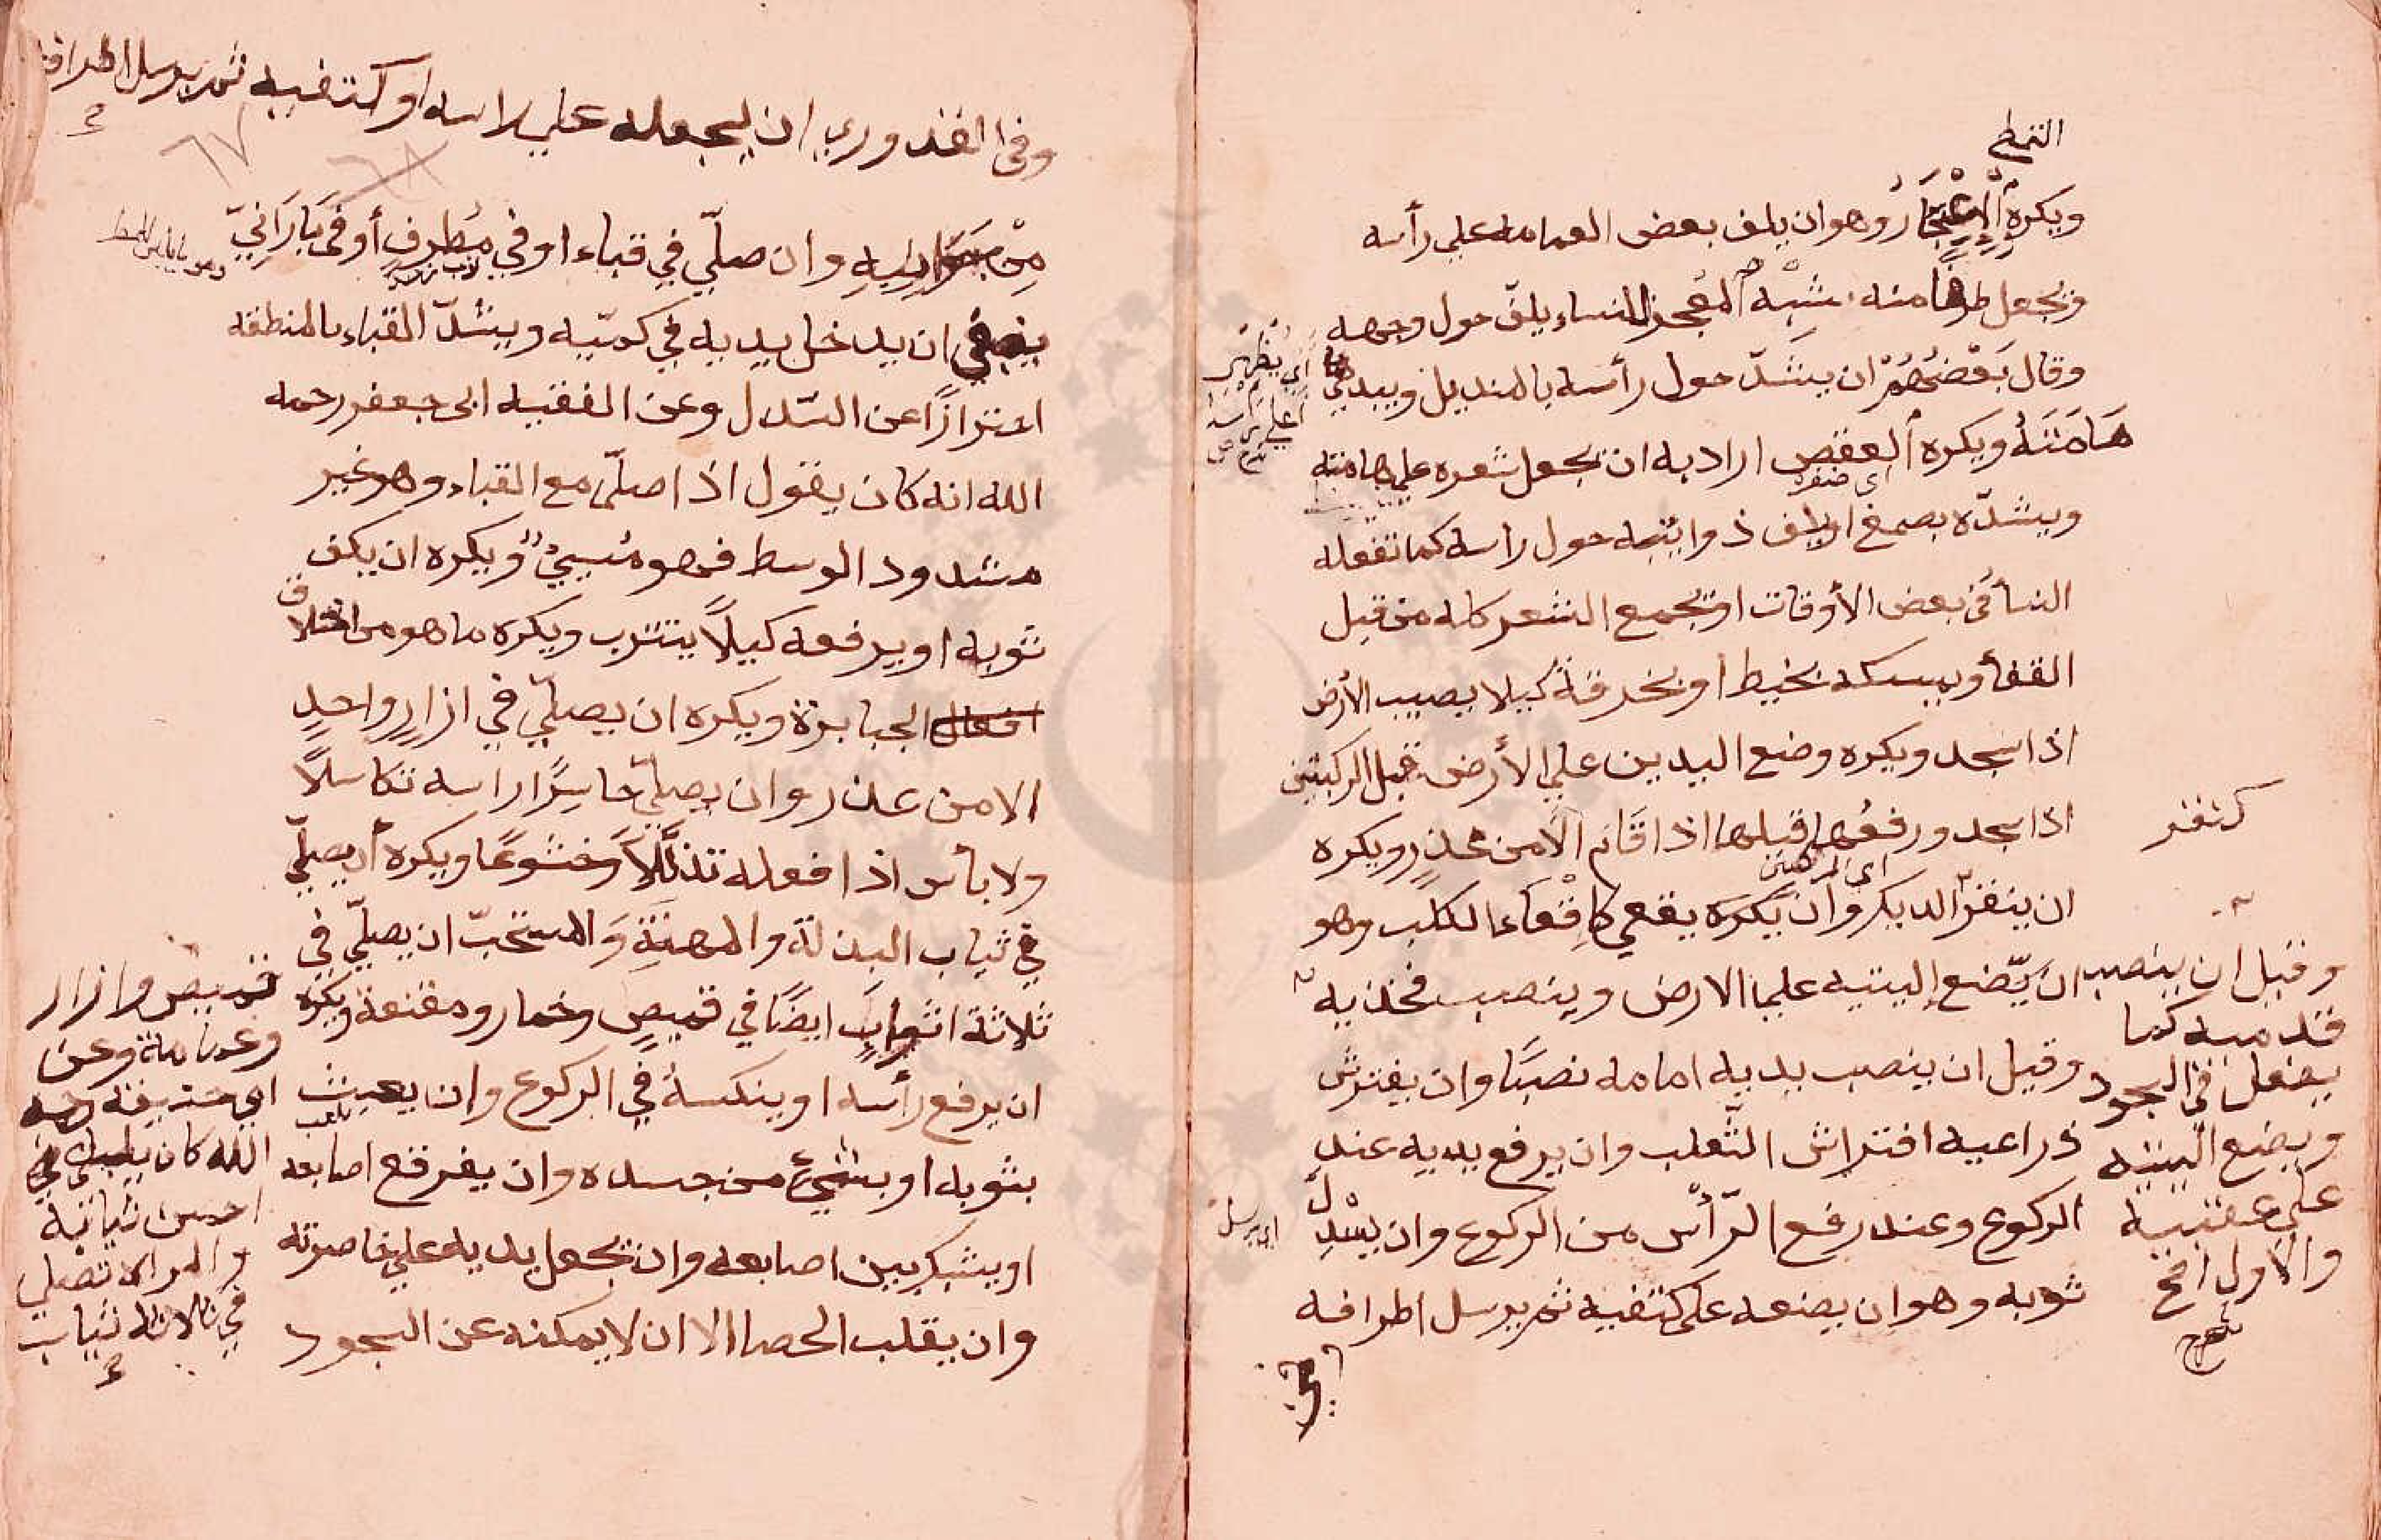 ويكره الاعتجار وهو ان يلف بعض العمامة علي رأسه
ويجعل طرفا منه شبه المعجر للنساء يلف حول وجهه
وقال بعضهم ان يشدّ حول رأسه بالمنديل ويبدي
هَامَتَهُ ويكره العقص اراد به ان يجعل شعره على هامته
اي ضفره
ويشدّه بصمغ او يلف ذوائبه حول راسه كما تفعله
النسأ في بعض الأوقات او يجمع الشعر كله من قبل
القفأ ويمسكه بخيط او بخرقة كيلا يصيب الأرض
اذا سجد ويكره وضع اليدين علي الأرض قبل الركبتين
اذا سجد ورفعها قبلها اذا قام الا من عذر ويكره
ان ينقر الديك وان يكره يقعي كإقعاء الكلب وهو
ان يّضع إليتيه علي الارض وينصب فخذيه
وقيل ان ينصب يديه امامه نصبًا وان يفترش
ذراعيه افتراش الثّعلب وان يرفع يديه عند
الركوع وعند رفع الرّأس من الركوع وان يسْدل
ثوبه وهو ان يضعه على كتفيه ثم يرسل اطرافه
كنقر
وقيل ان ينصب
قدميه كما
يفعل في السجود
ويضع اليتيه
علي عقبيه
والاول اصح
اي يظهر
اعلي راسه
اي يرسل
وفي القدوري ان يجعله علي راسه او كتفيه ثم يرسل اطرافه
٦٧
٦٨
مِنْ جوانبه وان صلّي في قباء او في مُطرف أو في بَارَانِيّ
ينبغي ان يدخل يديه في كمّيه ويشدّ القباء بالمنطقة
احترازًا عن السّدل وعن الفقيه ابى جعفر رحمه
الله انه كان يقول اذا صلّى مع القباء وهو غير
مشدود الوسط فهو مُسيئ ويكره ان يكف
ثوبه او يرفعه كيلاً يتترب ويكره ما هو من اخلاق
الجبابرة ويكره ان يصلّي في ازارٍ واحدٍ
الا من عذر وان يصلّي حاسرًا راسه تكاسلاً
ولا بأس اذا فعله تذلّلاً وخشوعًا ويكره أن يصلّي
في ثياب البذلة والمهنة والمستحبّ ان يصلّي في
ثلاثة اثوابٍ ايضًا في قميصٍ وخمار ومقنعة ويكره
ان يرفع رأسه او ينكسه في الركوع وان يعبث
بثوبه او بشيئ من جسده وان يفرقع اصابعه
او يشبك بين اصابعه وان يجعل يديه علي خاصرته
وان يقلب الحصا الا ان لا يمكنه عن السجود
قميص وازار
وعمامة وعن
ابي حنيفة رحمه
الله كان يلبس في
احسن ثيابه
والمراة تصلي
في ثلاثة ثياب